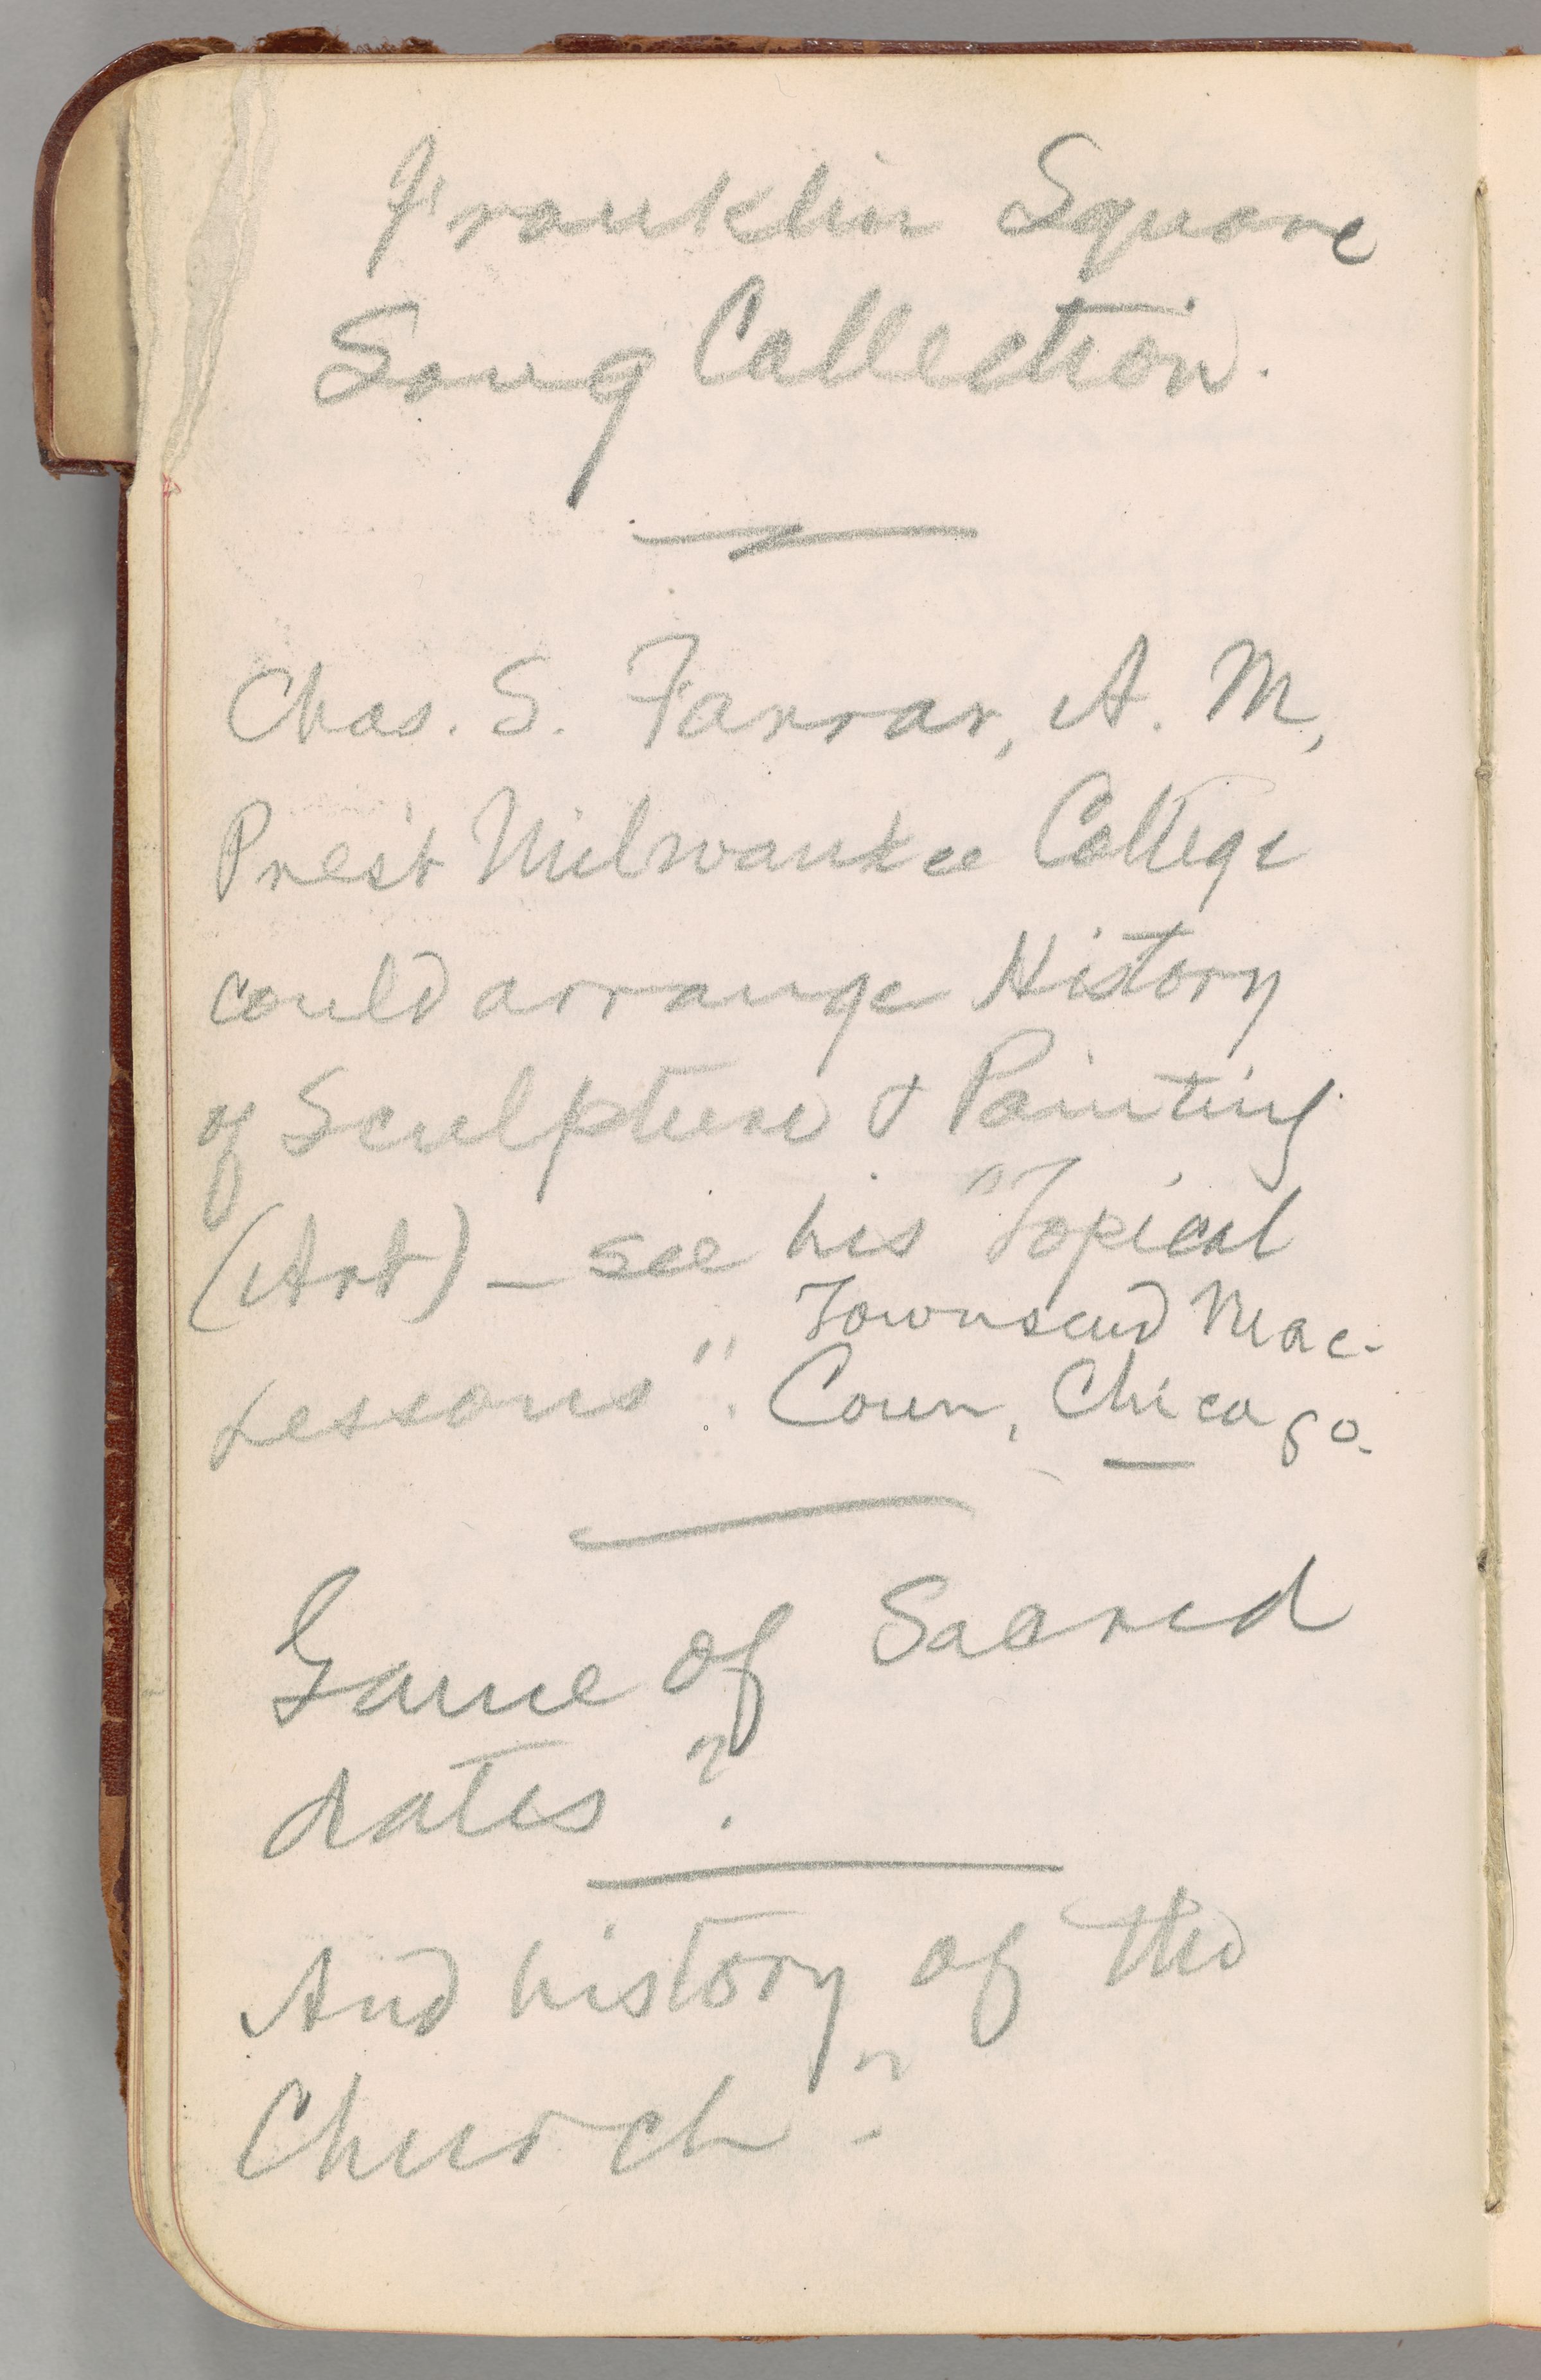 Franklin Square
Song Collection.
Chas. S. Farrar, A. M,
Prest Milwaukee College
could arrange History
of Sculpture & Painting
(Art) – see his "Topical
Lessons". Townsend Mac-
Coun, Chicago.
Game of Sacred
dates?
And history of the
Church?